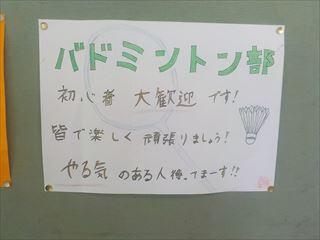 バドミントン部
初心者 大歓迎 です!
皆で楽しく 頑張りましょう!
やる気 のある人待ってまーす!!